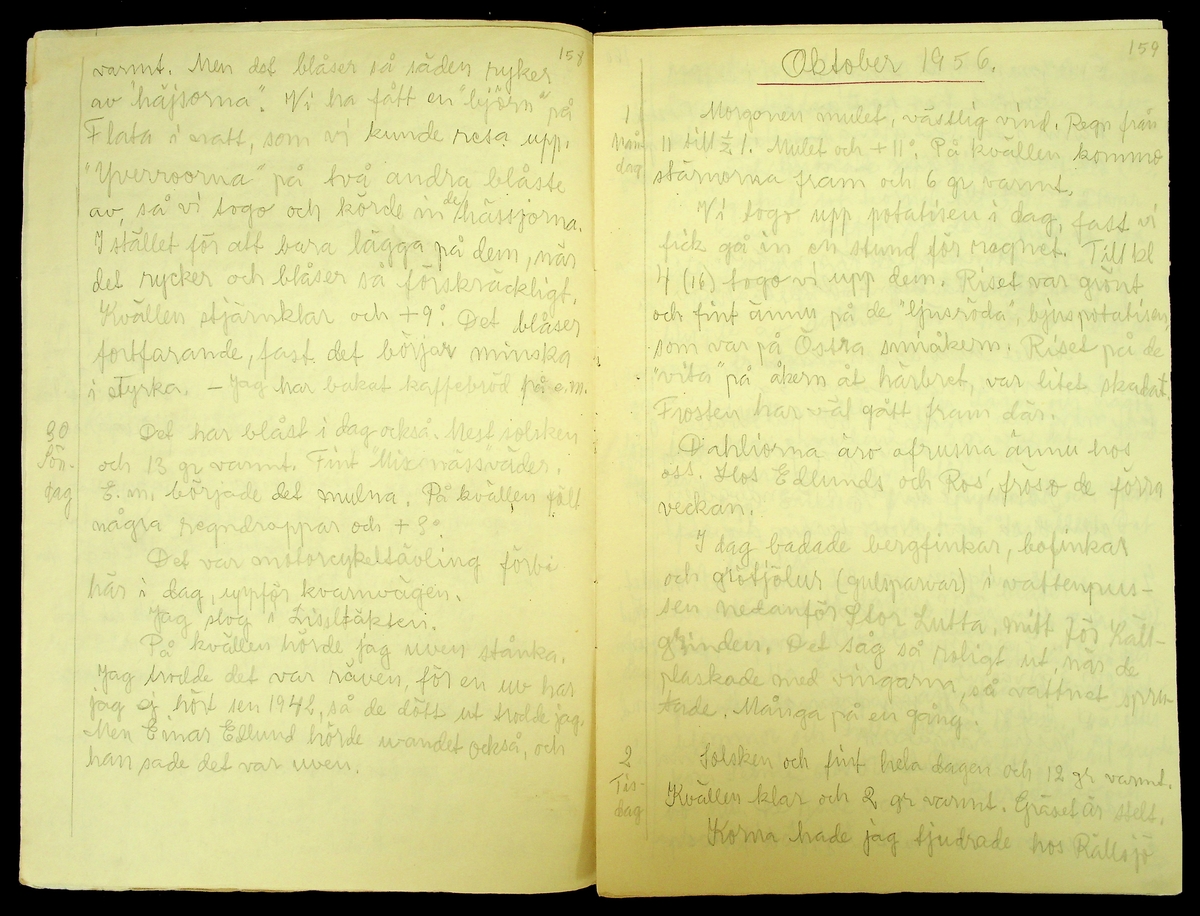 158
varmt. Men det blåser så säden ryker
av "häjsorna". Vi ha fått en "björn" på
Flata i natt, som vi kunde resa upp.
"Yverroorna" på två andra blåste
av, så vi togo och körde in de hässjorna.
I stället för att bara lägga på dem, när
det rycker och blåser så förskräckligt.
Kvällen stjärnklar och +9°. Det blåser
fortfarande, fast det börjar minska
i styrka. – Jag har bakat kaffebröd på e.m.
30
Sön-
dag
Det har blåst i dag också. Mest solsken
och 13 gr varmt. Fint
E.m. började det mulna. På kvällen föll
några regndroppar och +9°
Det var motorcykeltävling förbi
här i dag, uppför kvarnvägen.
Jag slog i Lissltäkten.
På kvällen hörde jag uven stånka.
Jag trodde det var räven, för en uv har
jag ej hört sen 1942, så de dött ut trodde jag.
Men Einar Edlund hörde också, och
han sade det var uven.
159
Oktober 1956.
1
Mån-
dag
Morgonen mulet, västlig vind. Regn från
11 till ½ 1. Mulet och +11°. På kvällen kommo
stärnorna fram och 6 gr varmt.
Vi togo upp potatisen i dag, fast vi
fick gå in en stund för regnet. Till kl
4 (16) togo vi upp dem. Riset var grönt
och fint ännu på de "ljusröda",
som var på Östra småkern. Riset på de
"vita" på åkern åt härbret, var litet skadat.
Frosten har väl gått fram där.
Dahliorna äro ofrusna ännu hos
oss. Hos Edlunds och Ros', fröso de förra
veckan.
I dag badade bergfinkar, bofinkar
och grötjölur (gulsparvar) i vattenpus-
sen nedanför Stor Lutta, mitt för Kält-
grinden. Det såg så roligt ut, när de
plaskade med vingarna, så vattnet spru-
tade. Många på en gång.
2
Tis-
dag
Solsken och fint hela dagen och 12 gr varmt.
Kvällen klar och 2 gr varmt. Gräset är stelt.
Korna hade jag tjudrade hos Rällsjö